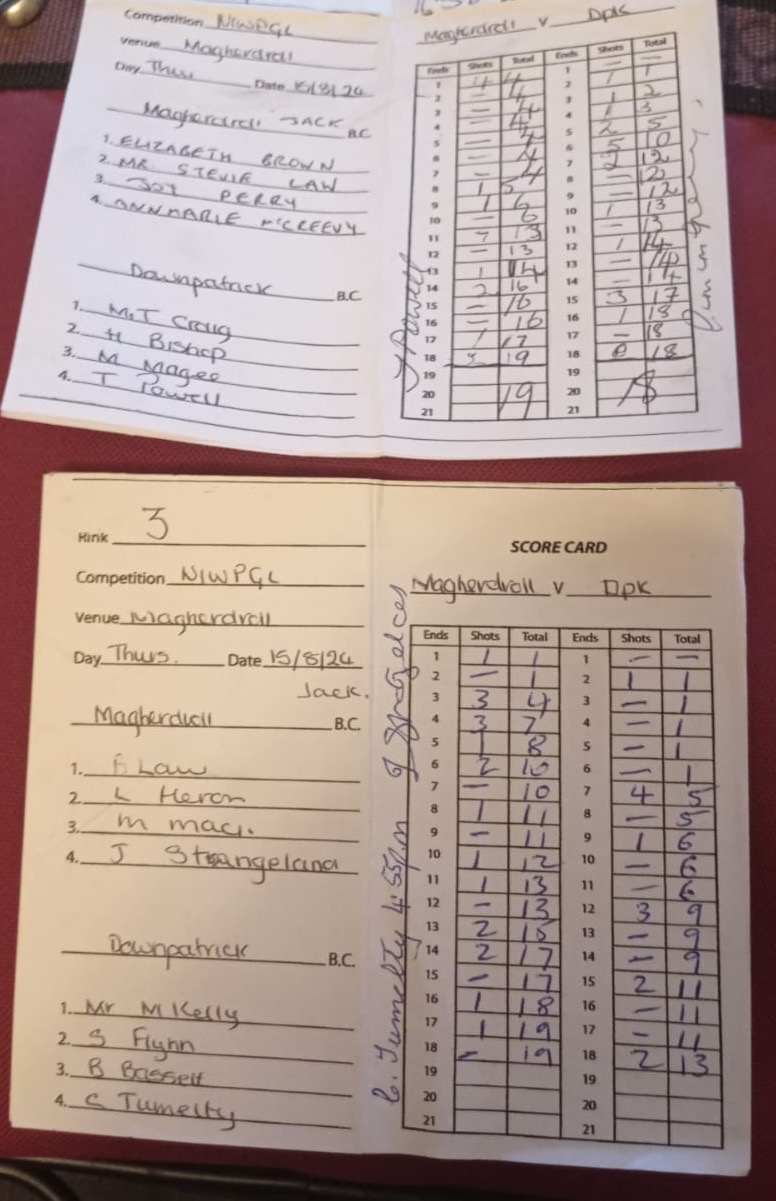 Competition NIWPGL
Venue Magherdroll
Day Thur Date 15/8/24
Magherdroll JACK B.C
1. ELIZABETH BROWN
2. MR. STEVIE LAW
3. JOY PERRY
4. ANNMARIE McCREEVY
Downpatrick B.C.
1. M.T Craig
2. H Bishop
3. M Magee
4. T Powell
Magherdroll v Dpk
Ends Shots Total Ends Shots Total
1 4 4 1 — —
2 — 4 2 1 1
3 — 4 3 1 2
4 — 4 4 1 3
5 — 4 5 2 5
6 — 4 6 5 10
7 — 4 7 2 12
8 1 5 8 — 12
9 1 6 9 — 12
10 — 6 10 1 13
11 7 13 11 — 13
12 — 13 12 1 14
13 1 14 13 — 14
14 2 16 14 — 14
15 — 16 15 3 17
16 — 16 16 1 18
17 1 17 17 — 18
18 19 18 0 18
19 19
20 19 20 18
21 21
T Powell
Rink 3
Competition NIWPGL
Venue Magherdroll
Day Thurs. Date 15/8/24
Jack.
Magherdroll B.C.
1. Law
2. L Heron
3. M mac.
4. J Strangeland
Downpatrick B.C.
1. Mr M Kelly
2. S Flynn
3. B Bassett
4. C Tumelty
SCORE CARD
Magherdroll v Dpk
Ends Shots Total Ends Shots Total
1 1 1 1 — —
2 — 1 2 1 1
3 3 4 3 — 1
4 3 7 4 — 1
5 1 8 5 — 1
6 2 10 6 — 1
7 — 10 7 4 5
8 1 11 8 — 5
9 — 11 9 1 6
10 1 12 10 — 6
11 1 13 11 — 6
12 — 13 12 3 9
13 2 15 13 — 9
14 2 17 14 — 9
15 — 17 15 2 11
16 1 18 16 — 11
17 1 19 17 — 11
18 — 19 18 2 13
19 19
20 20
21 21
C. Tumelty 4.55p.m